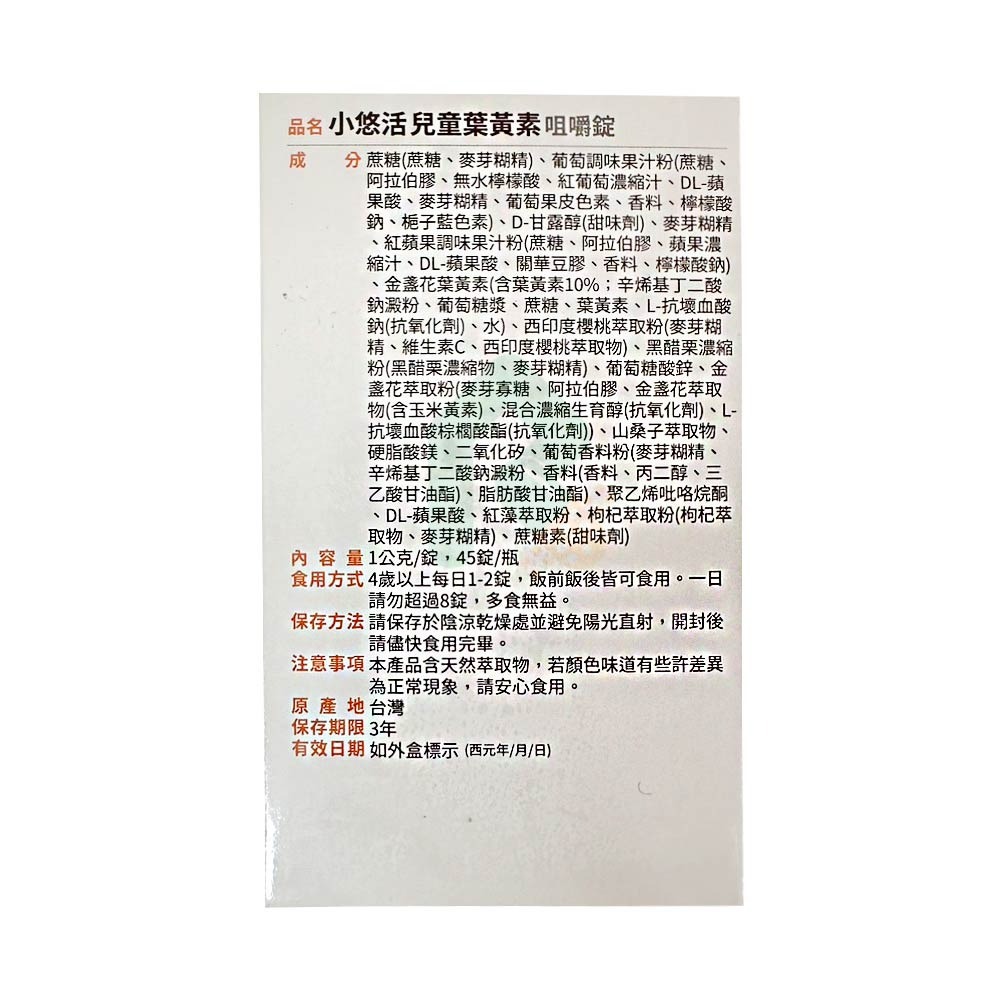 品名 小悠活兒童葉黃素咀嚼錠
成分 蔗糖(蔗糖、麥芽糊精)、葡萄調味果汁粉(蔗糖、
阿拉伯膠、無水檸檬酸、紅葡萄濃縮汁、DL-蘋
果酸、麥芽糊精、葡萄果皮色素、香料、檸檬酸
鈉、梔子藍色素)、D-甘露醇(甜味劑)、麥芽糊精
、紅蘋果調味果汁粉(蔗糖、阿拉伯膠、蘋果濃
縮汁、DL-蘋果酸、關華豆膠、香料、檸檬酸鈉)
、金盞花葉黃素(含葉黃素10%；辛烯基丁二酸
鈉澱粉、葡萄糖漿、蔗糖、葉黃素、L-抗壞血酸
鈉(抗氧化劑)、水)、西印度櫻桃萃取粉(麥芽糊
精、維生素C、西印度櫻桃萃取物)、黑醋栗濃縮
粉(黑醋栗濃縮物、麥芽糊精)、葡萄糖酸鋅、金
盞花萃取粉(麥芽寡糖、阿拉伯膠、金盞花萃取
物(含玉米黃素)、混合濃縮生育醇(抗氧化劑)、L-
抗壞血酸棕櫚酸酯(抗氧化劑))、山桑子萃取物、
硬脂酸鎂、二氧化矽、葡萄香料粉(麥芽糊精、
辛烯基丁二酸鈉澱粉、香料(香料、丙二醇、三
乙酸甘油酯)、脂肪酸甘油酯)、聚乙烯吡咯烷酮
、DL-蘋果酸、紅藻萃取粉、枸杞萃取粉(枸杞萃
取物、麥芽糊精)、蔗糖素(甜味劑)
內容量 1公克/錠，45錠/瓶
食用方式 4歲以上每日1-2錠，飯前飯後皆可食用。一日
請勿超過8錠，多食無益。
保存方法 請保存於陰涼乾燥處並避免陽光直射，開封後
請儘快食用完畢。
注意事項 本產品含天然萃取物，若顏色味道有些許差異
為正常現象，請安心食用。
原產地 台灣
保存期限 3年
有效日期 如外盒標示 (西元年/月/日)